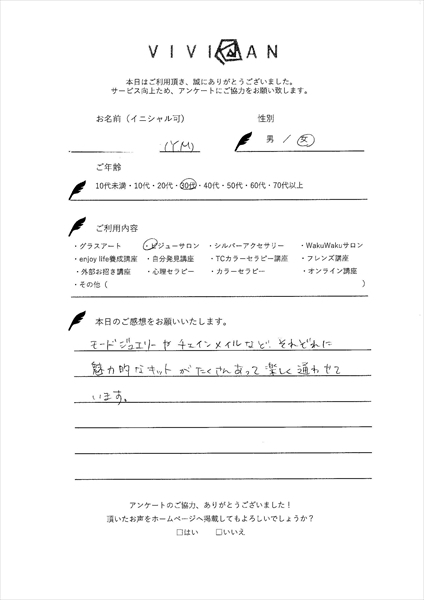 VIVIAN
本日はご利用頂き、誠にありがとうございました。
サービス向上ため、アンケートにご協力をお願い致します。
お名前（イニシャル可） 性別
(YM) 男 ／ 女
ご年齢
10代未満・10代・20代・30代・40代・50代・60代・70代以上
ご利用内容
・グラスアート ・ビジューサロン ・シルバーアクセサリー ・WakuWakuサロン
・enjoy life養成講座 ・自分発見講座 ・TCカラーセラピー講座 ・フレンズ講座
・外部お招き講座 ・心理セラピー ・カラーセラピー ・オンライン講座
・その他（ ）
本日のご感想をお願いいたします。
モードジュエリーやチェインメイルなど、それぞれに
魅力的なキットがたくさんあって楽しく通わせて
います。
アンケートのご協力、ありがとうございました！
頂いたお声をホームページへ掲載してもよろしいでしょうか？
□はい □いいえ